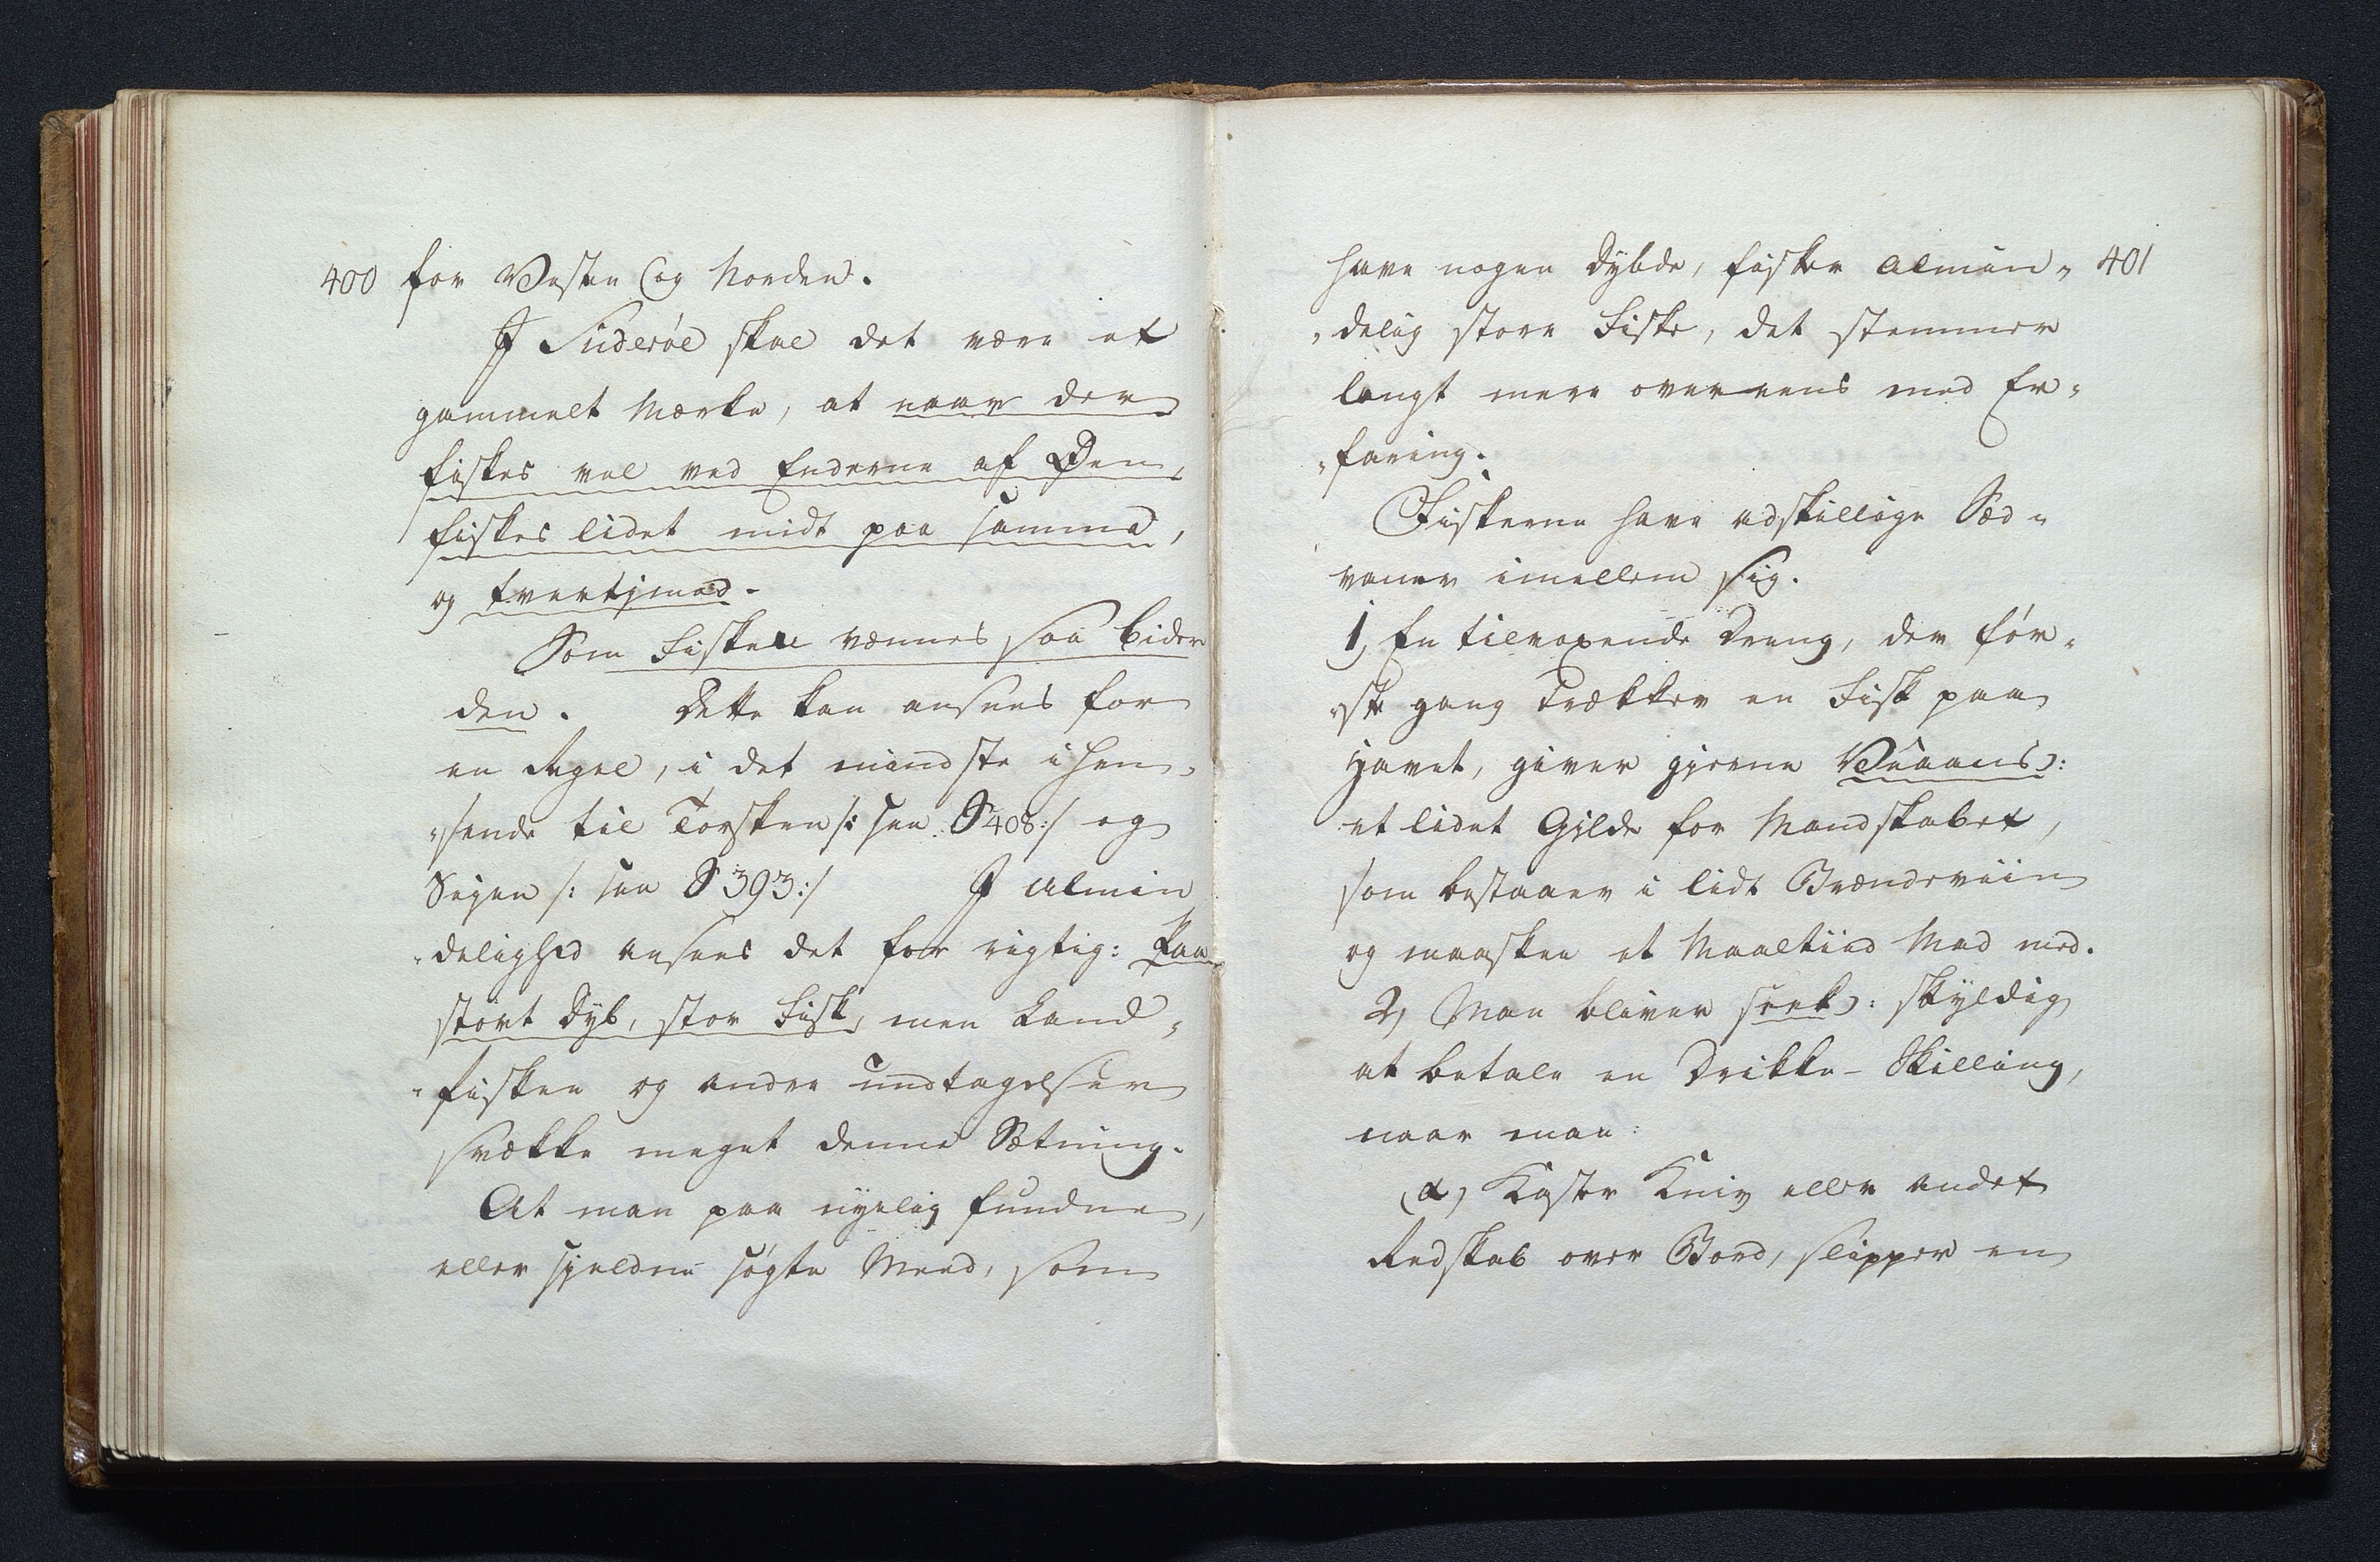 400 for Vesten og Norden.
I Suderøe skal det være et
gammelt Mærke, at naar der
fiskes vel ved Enderne af Øen,
fiskes lidet midt paa samme,
og tvertjmod.
Som Fisken vænnes saa bider
den. Dette kan ansees for
en Regel, i det mindste i Hen„
„sende til Torsken /: see § 408:/ og
Sejen /: see § 393:/ I almin
„delighed ansees det for rigtig: Paa
stort Dyb, stor Fisk, men Land„
„fisken og andre Undtagelser
svække meget denne Sætning.
At man paa nyelig fundne,
eller sjelden søgte Meed, som
have nogen Dybde, fisker almin„ 401
„delig store Fiske, det stemmer
langt mere overeens med Er„
„faring.
Fiskerne have adskillige Sæd„
vaner imellem sig.
1, En tilvoxende Dreng, der før„
„ste gang trækker en Fisk paa
Havet, giver gjerne Vaans):
et lidet Gilde for Mandskabet,
som bestaaer i lidt Brændeviin
og maaskee et Maaltiid Mad med.
2, Man bliver seek): skyldig
at betale en Drikke-Skilling,
naar man:
α, Kaster Kniv eller andet
Redskab over Bord, slipper en